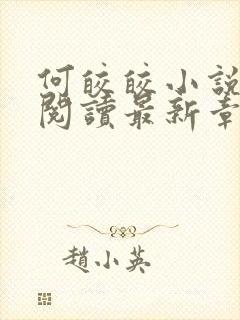 何皎皎小說
閱讀最新章
趙小英